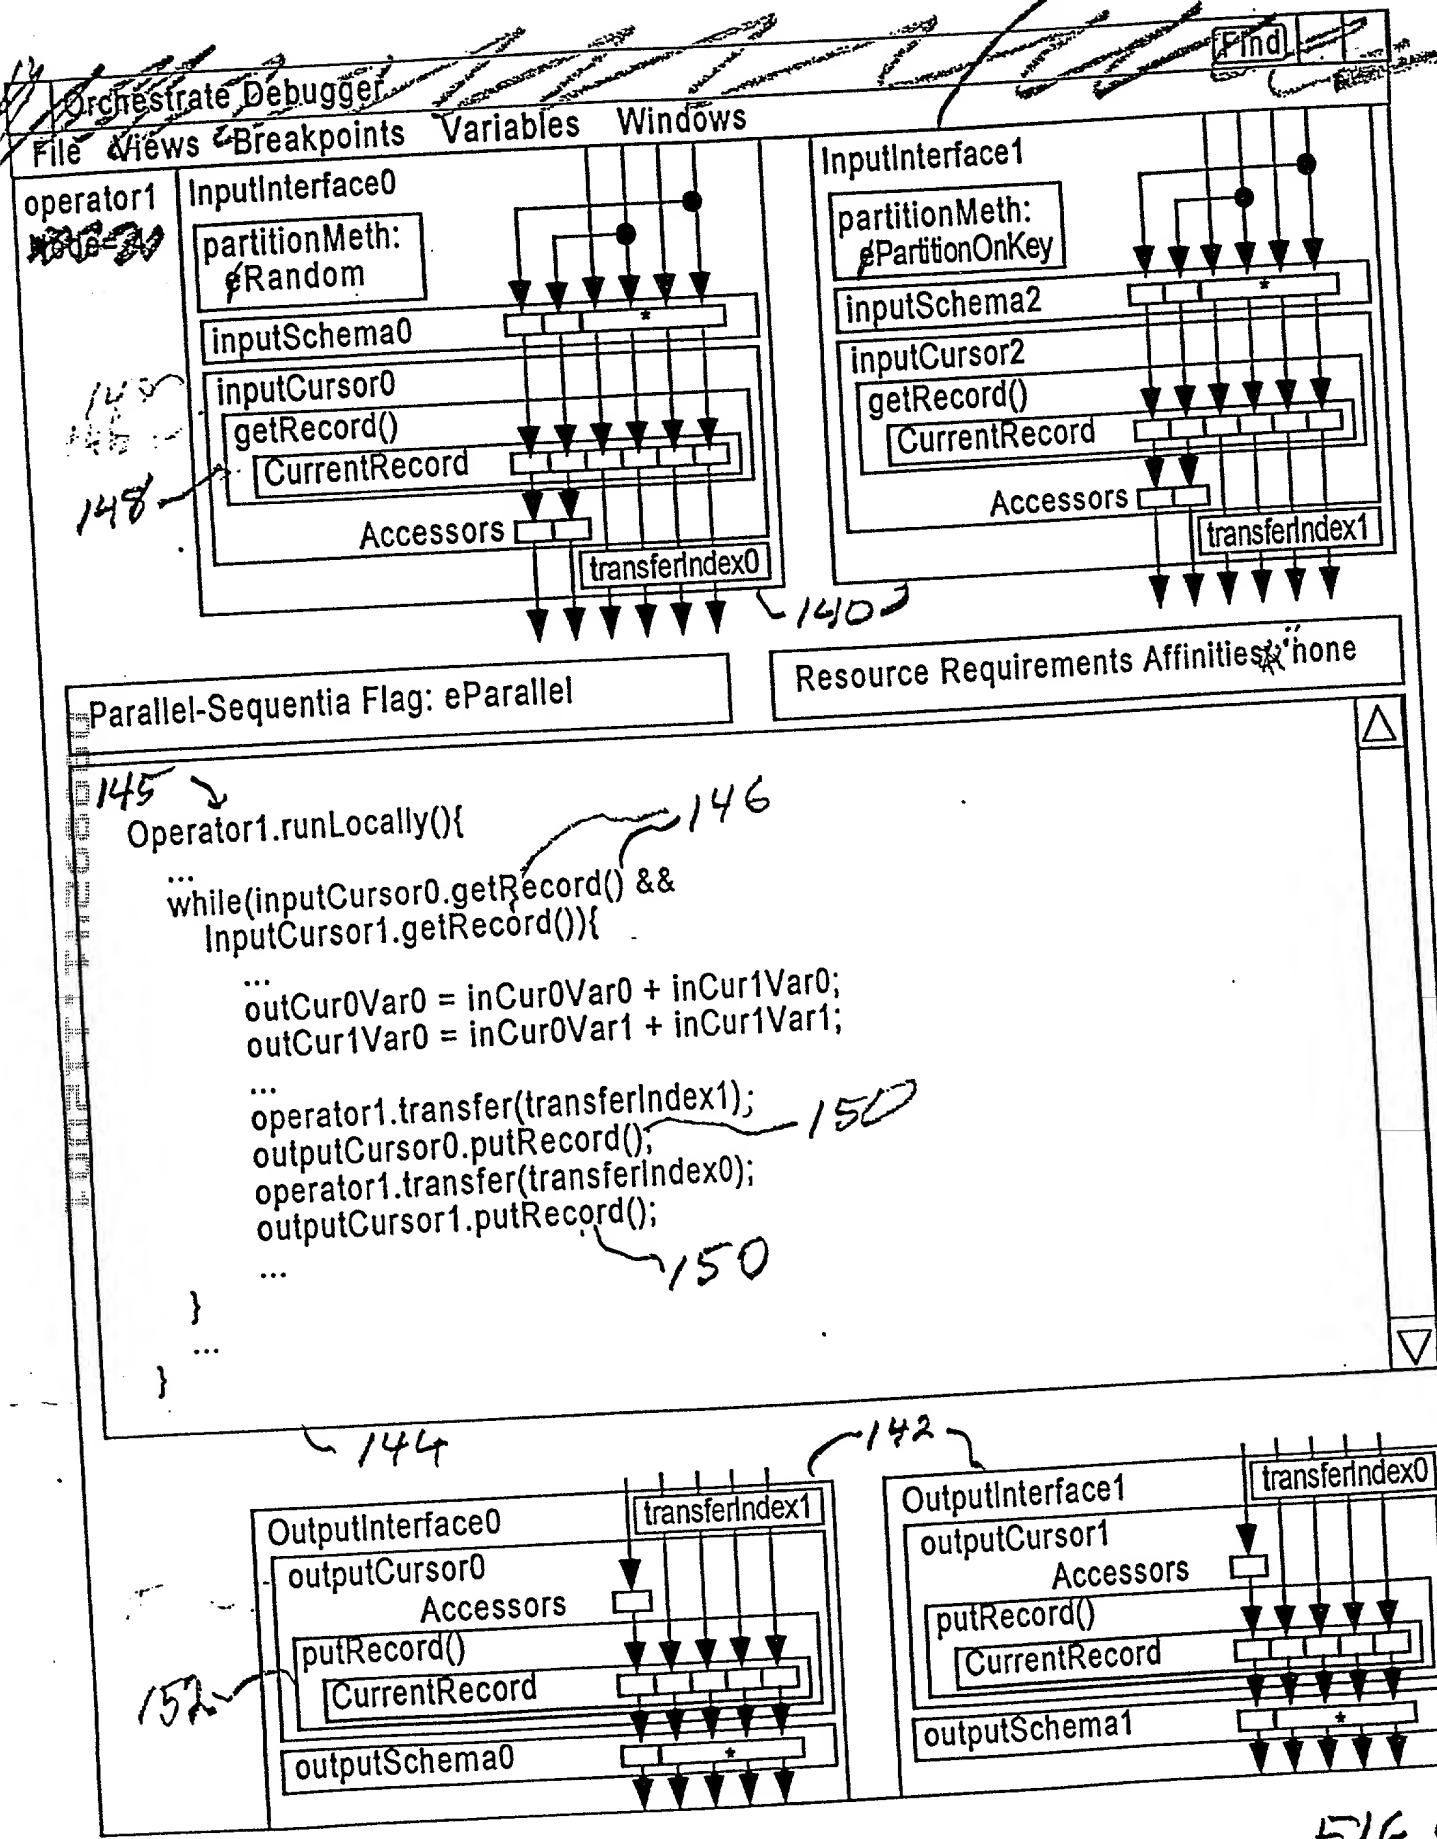 Find
Orchestrate Debugger
File Views Breakpoints Variables Windows
operator1
InputInterface0
partitionMeth:
eRandom
inputSchema0
*
inputCursor0
getRecord()
CurrentRecord
Accessors
transferIndex0
148
InputInterface1
partitionMeth:
ePartitionOnKey
inputSchema2
*
inputCursor2
getRecord()
CurrentRecord
Accessors
transferIndex1
140
Parallel-Sequentia Flag: eParallel
Resource Requirements Affinities: none
145
146
Operator1.runLocally(){
...
while(inputCursor0.getRecord() &&
InputCursor1.getRecord()){
...
outCur0Var0 = inCur0Var0 + inCur1Var0;
outCur1Var0 = inCur0Var1 + inCur1Var1;
...
operator1.transfer(transferIndex1);
outputCursor0.putRecord();
150
operator1.transfer(transferIndex0);
outputCursor1.putRecord();
150
...
}
...
}
144
142
OutputInterface0
transferIndex1
outputCursor0
Accessors
putRecord()
CurrentRecord
152
outputSchema0
*
OutputInterface1
transferIndex0
outputCursor1
Accessors
putRecord()
CurrentRecord
outputSchema1
*